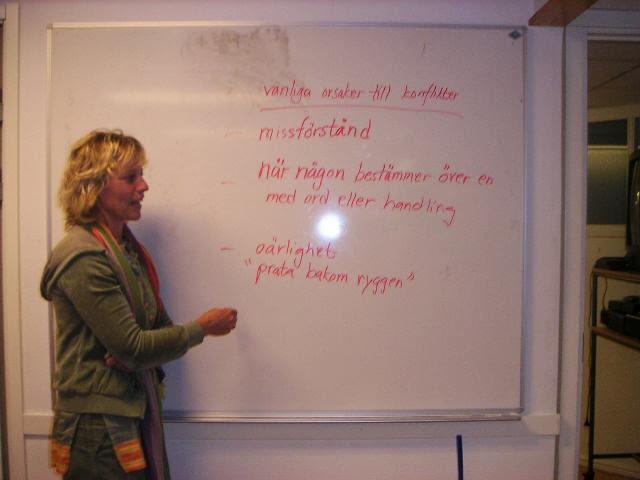 vanliga orsaker till konflikter
- missförstånd
- når någon bestämmer över en
med ord eller handling
- oärlighet
"prata bakom ryggen"